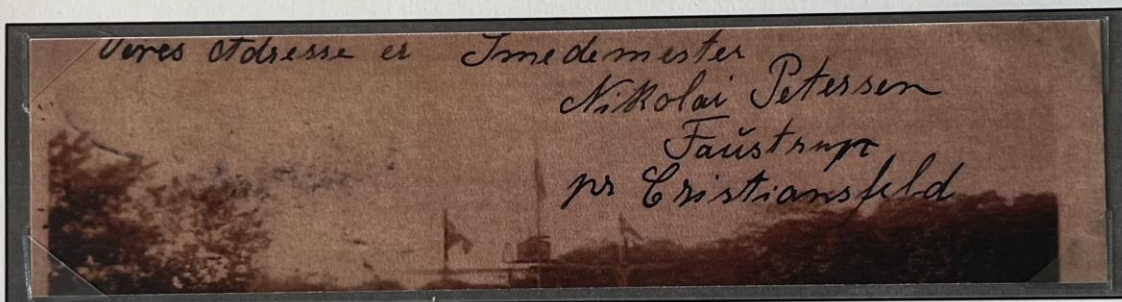 Deres Adresse er Smedemester
Nikolai Petersen
Faŭstrup
pr Cristiansfeld